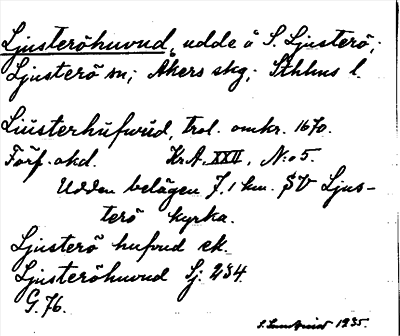 Ljusteröhuvud, udde å S. Ljusterö;
Ljusterö sn; Åkers skg; Sthlms l.
Liústerhufwúd, trol. omkr. 1670.
Förf. okd. Kr.A. XXII, N:o 5.
Udden belägen 7,1 km. SV Ljus-
terö kyrka.
Ljusterö hufvud ek.
Ljusteröhuvud Sj: 234.
G. 76.
1935.